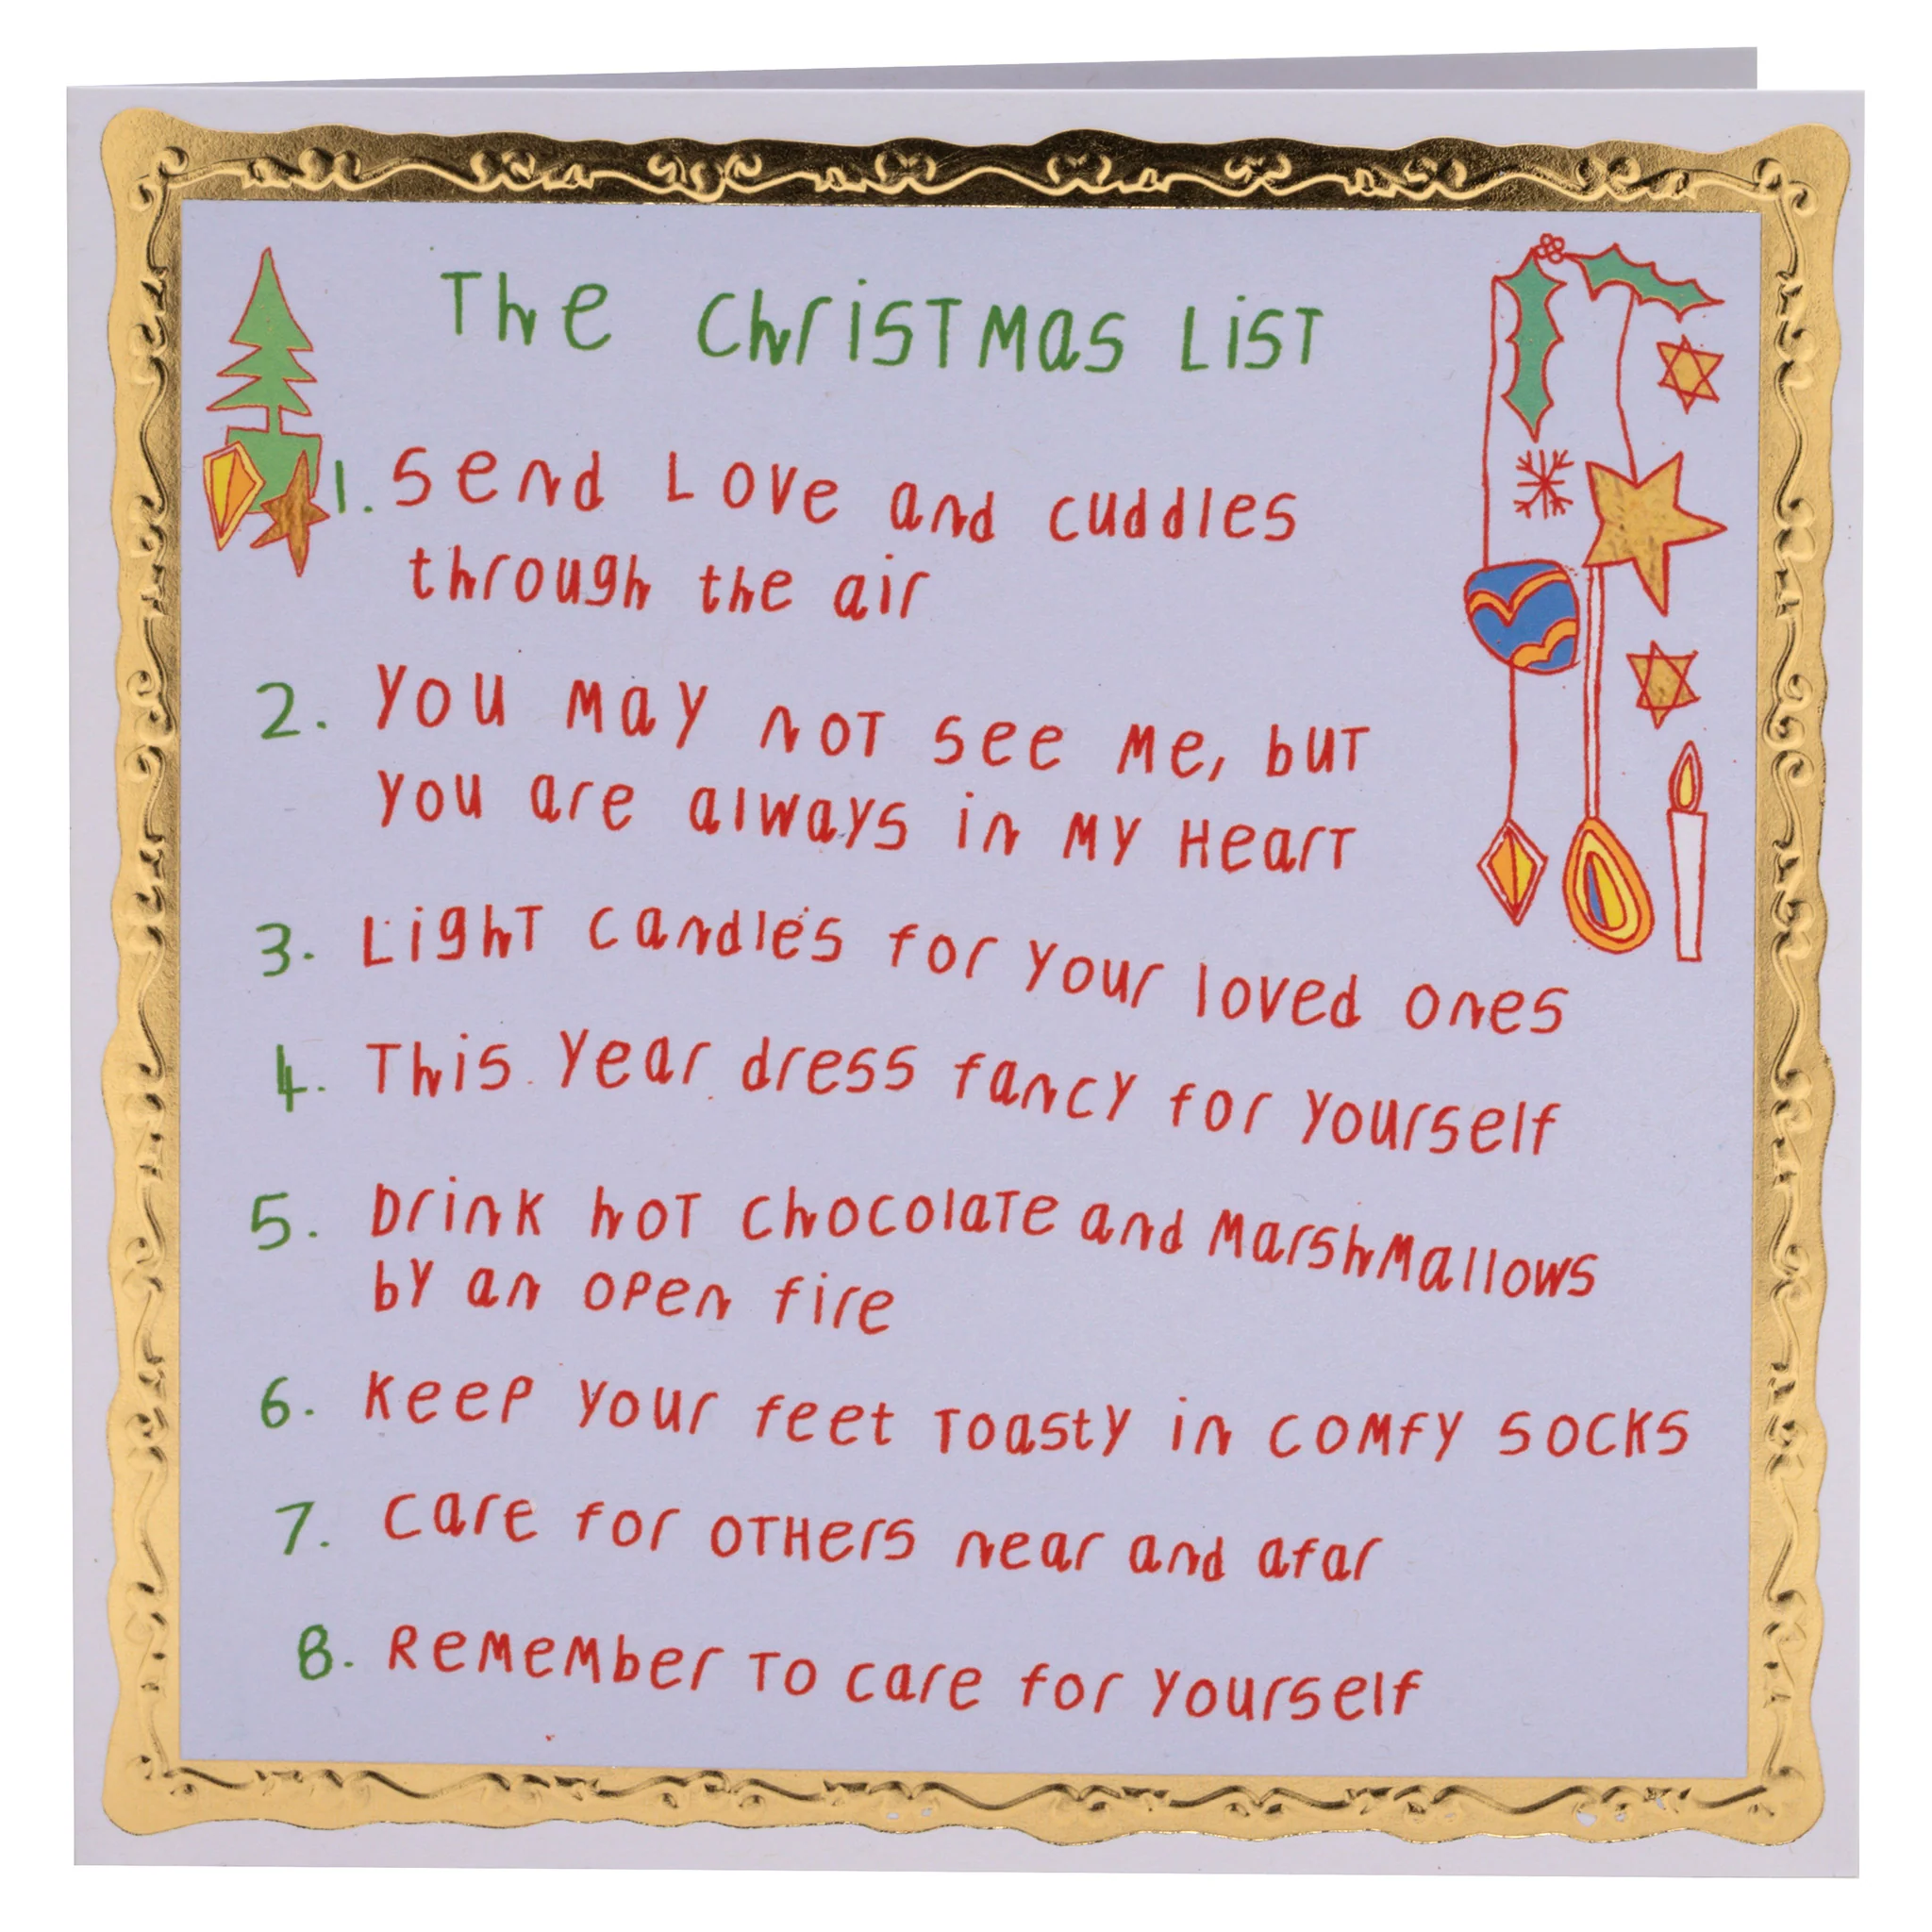 The Christmas List
1. Send Love and cuddles
through the air
2. You may not see me, but
you are always in my Heart
3. Light candles for your loved ones
4. This year dress fancy for yourself
5. Drink hot chocolate and marshmallows
by an open fire
6. Keep your feet toasty in comfy socks
7. Care for others near and afar
8. Remember to care for yourself